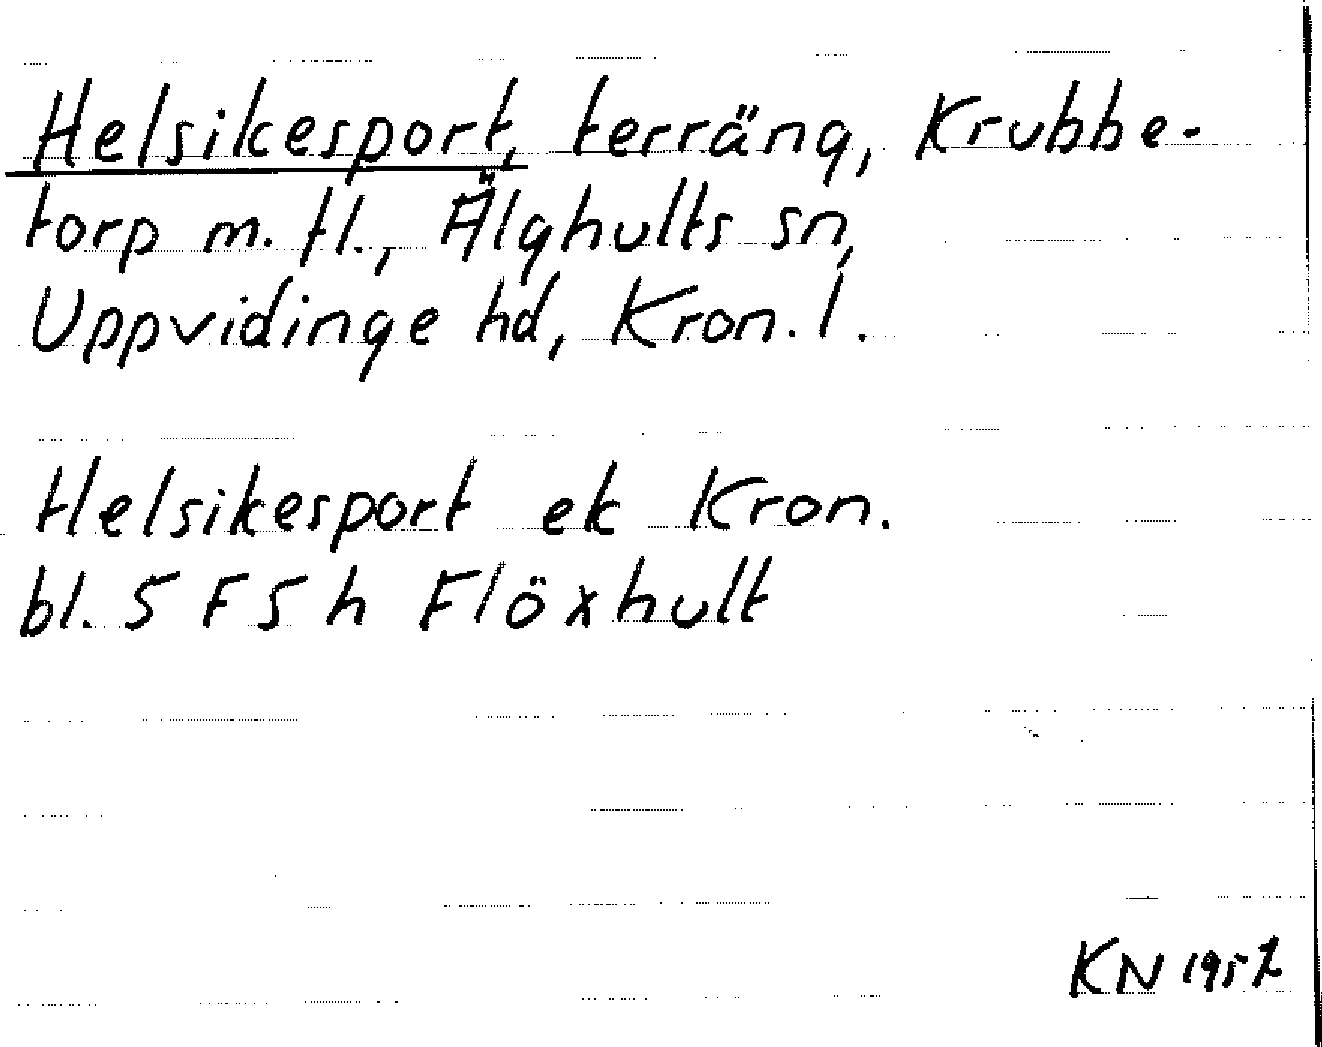 Helsikesport, terräng, Krubbe-
torp m. fl., Älghults sn,
Uppvidinge hd, Kron. l.
Helsikesport ek Kron.
bl. 5 F 5 h Flöxhult
KN 1957